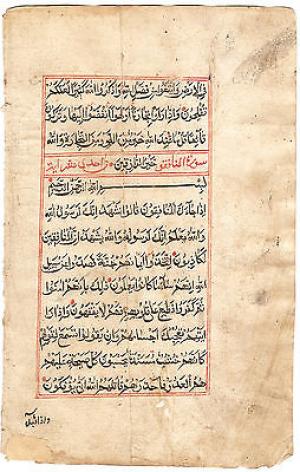 في الارض وابتغوا من فضل الله واذكروا الله كثيرا لعلكم
تفلحون واذا راوا تجارة او لهوا انفضوا اليها وتركوك
قائما قل ما عند الله خير من اللهو ومن التجارة والله
سورة المنافقون خير الرازقين احدى عشر آية
بسم الله الرحمن الرحيم
اذا جاءك المنافقون قالوا نشهد انك لرسول الله
والله يعلم انك لرسوله والله يشهد ان المنافقين
لكاذبون اتخذوا ايمانهم جنة فصدوا عن سبيل
الله انهم ساء ما كانوا يعملون ذلك بانهم امنوا
ثم كفروا فطبع على قلوبهم فهم لا يفقهون واذا را
يتهم تعجبك اجسامهم وان يقولوا تسمع لقولهم
كانهم خشب مسندة يحسبون كل صيحة عليهم
هم العدو فاحذرهم قاتلهم الله انى يؤفكون
واذا قيل